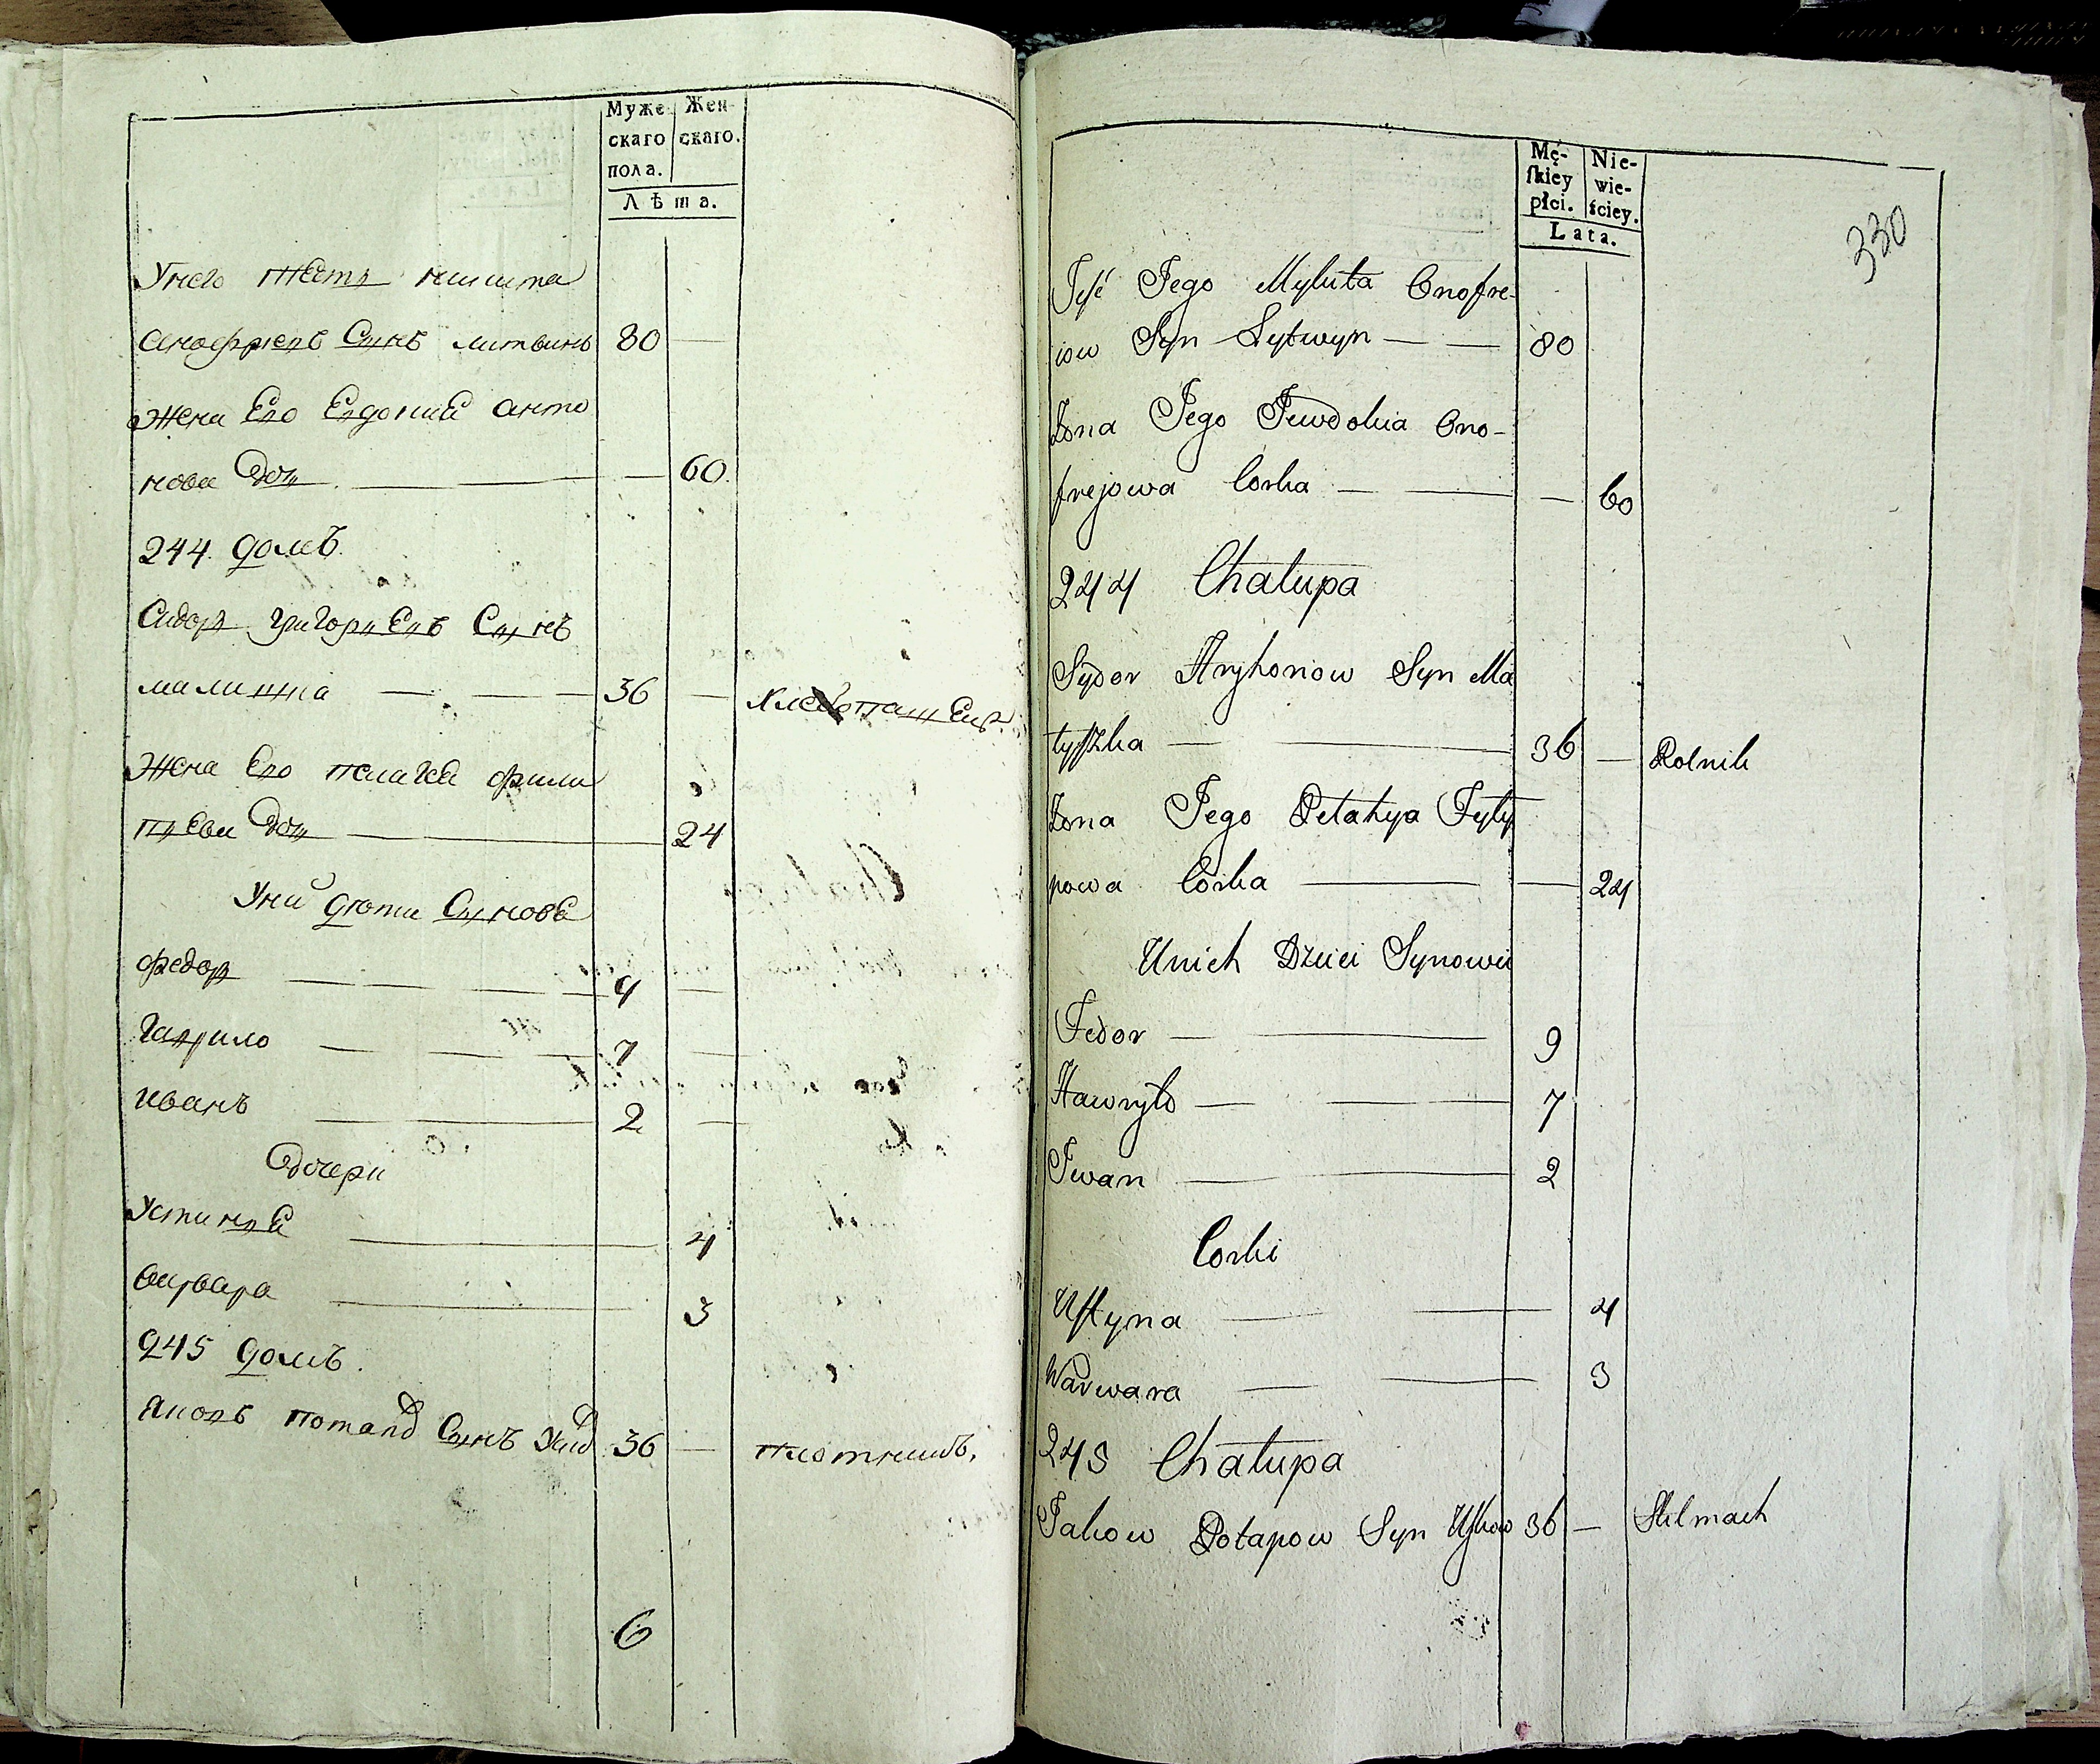 Муже
скаго
пола.
Жен-
скаго.
Лѣта.
Унего тесть никита
онофріевъ Сынъ литвинъ 80 —
Жена Его Евдокиѣ анто
нова Дочь — — 60.
244. домъ.
Сидоръ григорьевъ Сынъ
малишка — — — 36 —
Жена Его пелагеѣ фили
пьева Дочь — 24
Уних дѣти Сыновѣ
федоръ — — — 9 —
гаврило — — — 7 —
иванъ — 2 —
Дочери
Устиньѣ — 4
варвара — 3
245 домъ.
яковъ потапов Сынъ 36 — плотникъ.
6
Mę-
ſkiey
płci.
Nie-
wie-
ściey.
Lata.
330
Teść Jego Mykita Onofre-
iow Syn Lytwyn — — 80
Żona Jego Jewdokia Ono-
frejowa Corka — — — 60
244 Chałupa
Sydor Hryhoriow Syn Ma
łyſzka — — 36 — Rolnik
Żona Jego Pełahya Fyly
powa Corka — — 24
Unich Dzieci Synowie
Fedor — — 9
Hawryło — — — 7
Iwan — — 2
Corki
Uſtyna — — 4
Warwara — — 3
245 Chałupa
Jakow Potapow Syn Uſkow 36 — Stelmach